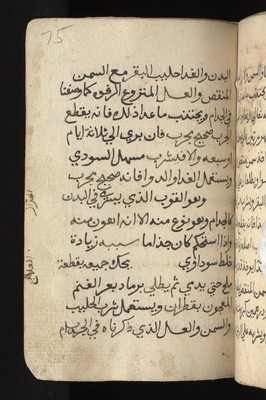 75
البدن والغدا حليب البقر مع السمن
المنقص والعسل المنزوع الرغوه كما وصفنا
في الجدام ويجتنب ما عدا ذلك فانه يقطع
الجرب صحيح مجرب فان بري الى ثلاثة ايام
او سبعه والا فليشرب مسهل السودي
ويستعمل الغدا والدوا فانه صحيح مجرب
وهو القوب الذي في البدن
كالجدام وهو نوع منه الا انه اهون منه
واذا استحكم كان جذاما سببه زيادة
خلط سوداوي يحك جميعه بقطعة
ملح حتى يدمى ثم يطلى برماد بعر الغنم
المعجون بقطران ويستعمل شرب الحليب
والسمن والعسل الذي ذكرناه في الجدام
العلاج